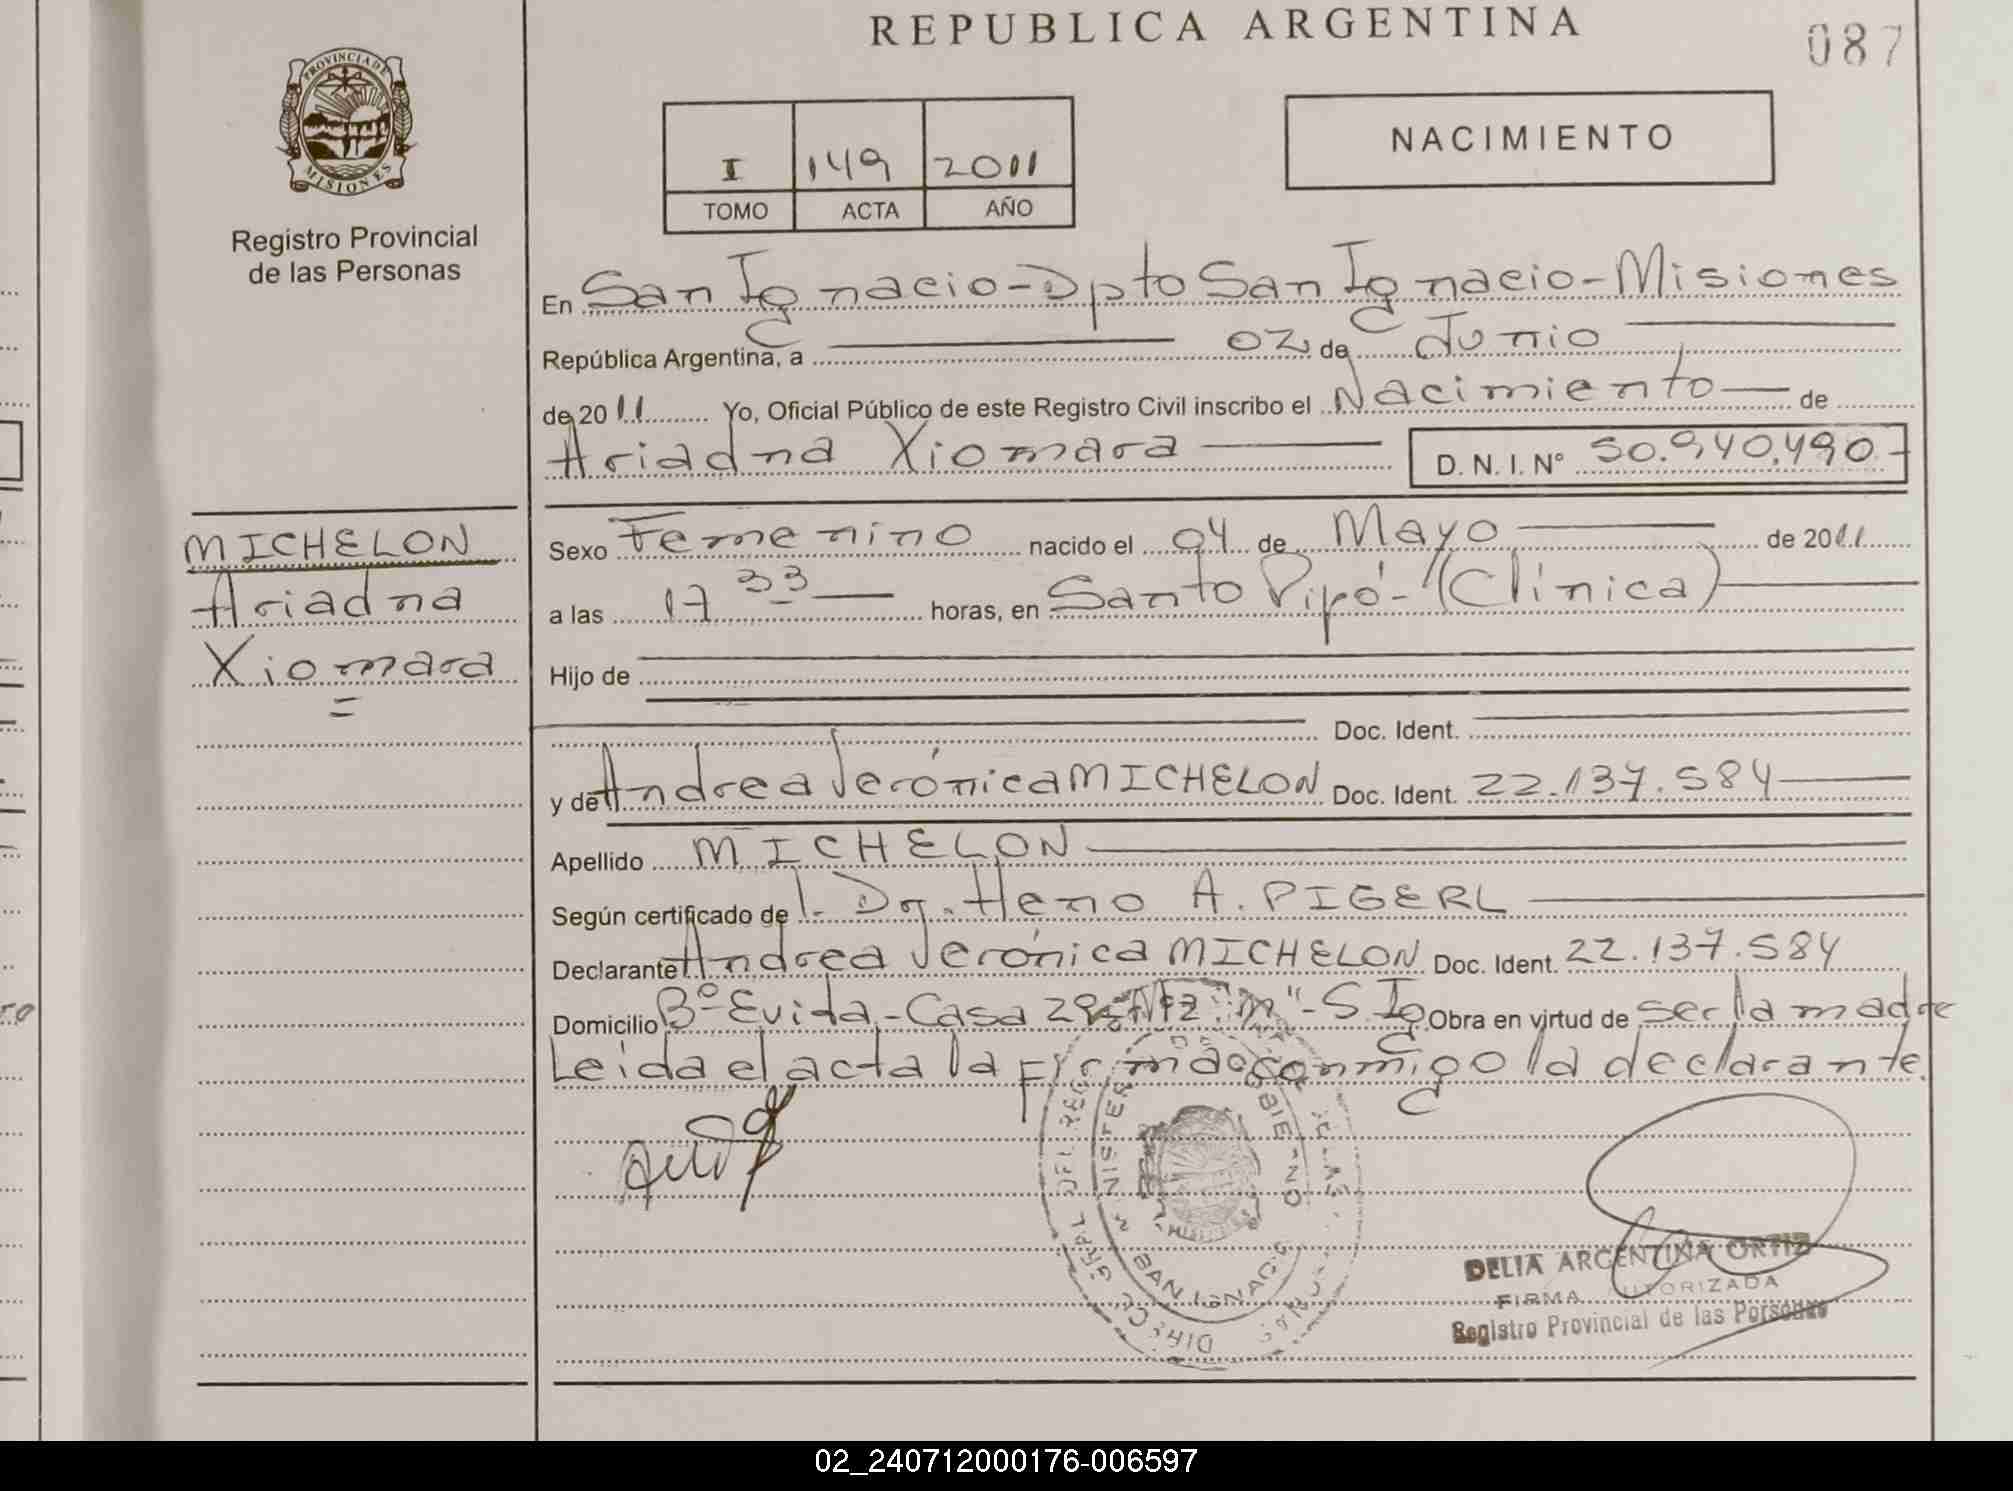 REPUBLICA ARGENTINA
087
PROVINCIA DE
MISIONES
Registro Provincial
de las Personas
I 149 2011
TOMO ACTA AÑO
NACIMIENTO
En San Ignacio - Dpto San Ignacio - Misiones
República Argentina, a 02 de Junio
de 2011 Yo, Oficial Público de este Registro Civil inscribo el Nacimiento de
Ariadna Xiomara D. N. I. Nº 50.940.490.-
MICHELON
Ariadna
Xiomara
Sexo Femenino nacido el 04 de Mayo de 2011
a las 17 33 horas, en Santo Pipó - (Clínica)
Hijo de
Doc. Ident.
y de Andrea Verónica MICHELON Doc. Ident. 22.137.584
Apellido MICHELON
Según certificado de l. Dr. Heno A. PIGERL
Declarante Andrea Verónica MICHELON Doc. Ident. 22.137.584
Domicilio Bº Evita - Casa 29 Mz "M" - S. Ig Obra en virtud de ser la madre
Leida el acta la firma conmigo la declarante.
SAN IGNACIO
DELIA ARGENTINA ORTIZ
FIRMA AUTORIZADA
Registro Provincial de las Personas
02_240712000176-006597